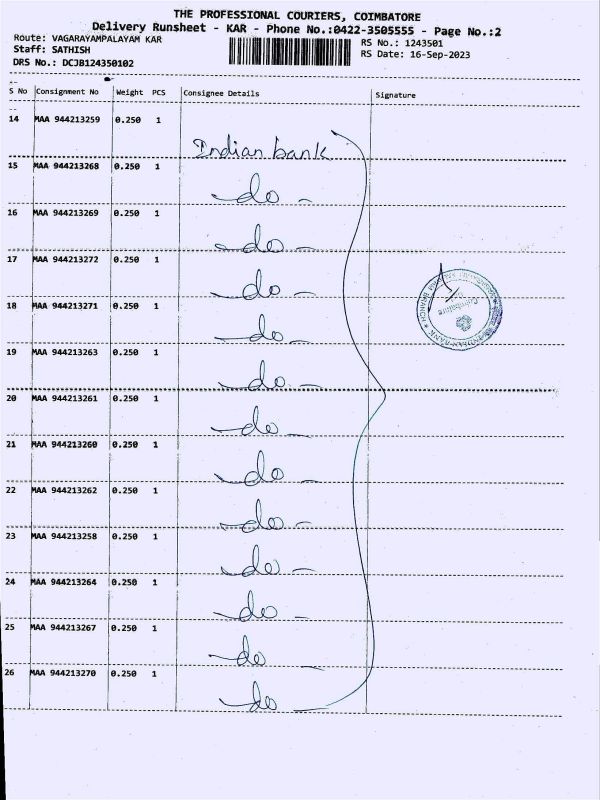 THE PROFESSIONAL COURIERS, COIMBATORE
Delivery Runsheet - KAR - Phone No.:0422-3505555 - Page No.:2
Route: VAGARAYAMPALAYAM KAR
RS No.: 1243501
Staff: SATHISH
RS Date: 16-Sep-2023
DRS No.: DCJB124350102
S No Consignment No Weight PCS Consignee Details Signature
14 MAA 944213259 0.250 1
Indian bank
15 MAA 944213268 0.250 1
-do-
16 MAA 944213269 0.250 1
-do-
17 MAA 944213272 0.250 1
-do-
18 MAA 944213271 0.250 1
-do-
19 MAA 944213263 0.250 1
-do-
20 MAA 944213261 0.250 1
-do-
21 MAA 944213260 0.250 1
-do-
22 MAA 944213262 0.250 1
-do-
23 MAA 944213258 0.250 1
-do-
24 MAA 944213264 0.250 1
-do-
25 MAA 944213267 0.250 1
-do-
26 MAA 944213270 0.250 1
-do-
INDIAN BANK
BRANCH
Coimbatore